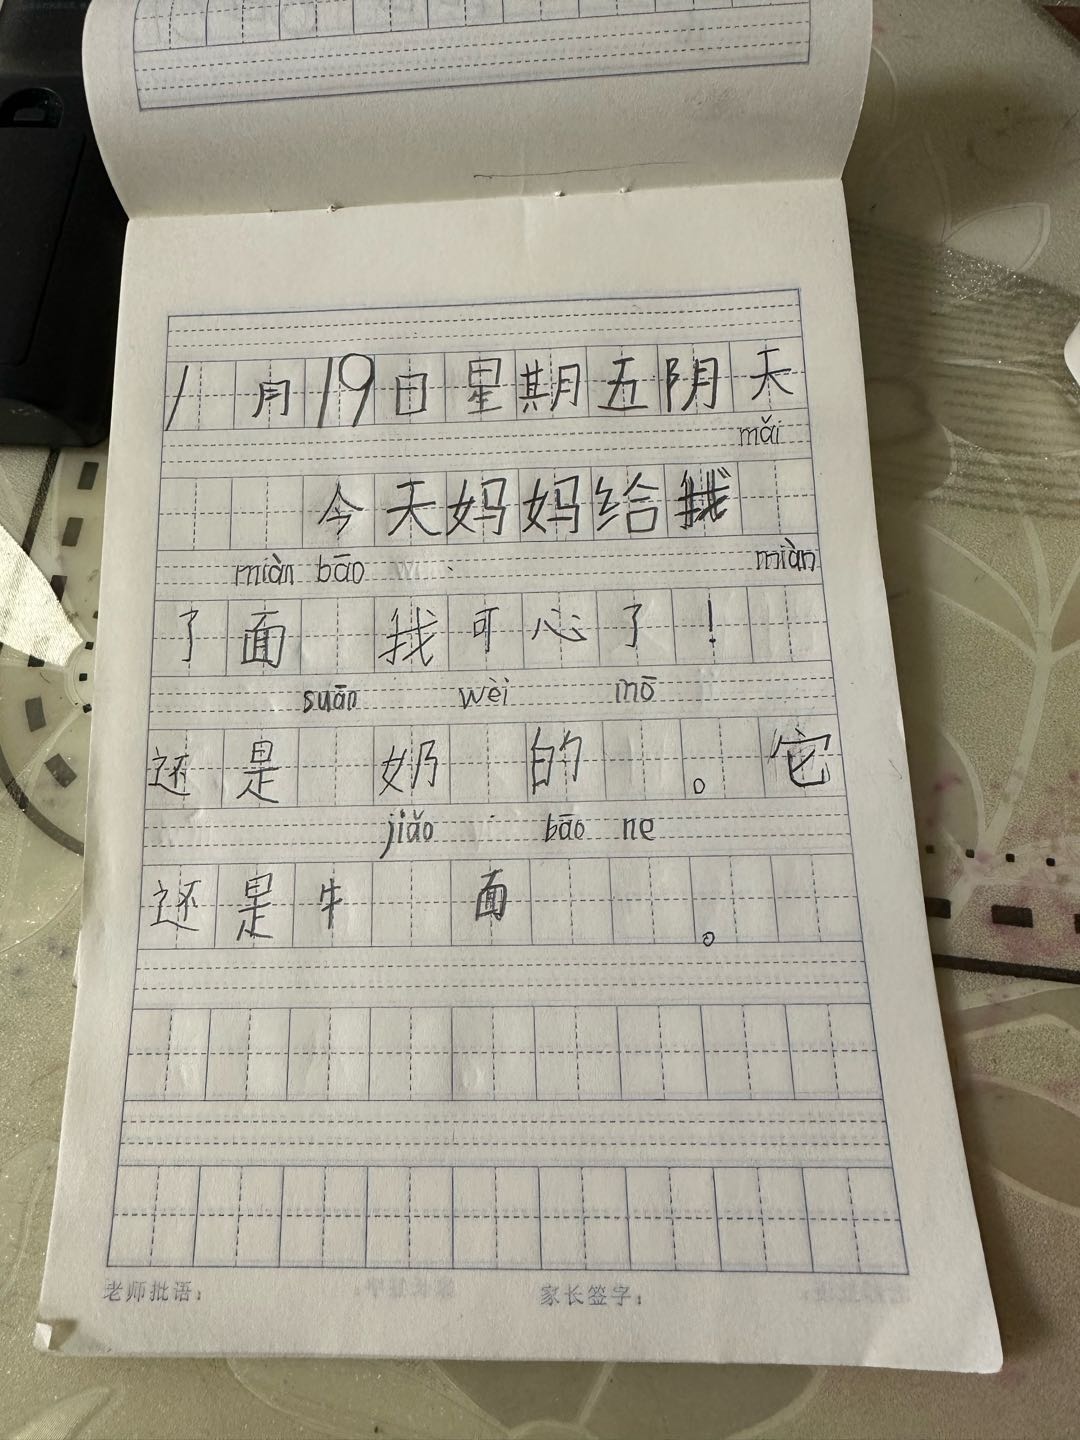 1月19日星期五阴天
mǎi
今天妈妈给我
miàn bāo miàn
了面 我可心了！
suān wèi mō
还是 奶 的 。它
jiǎo bāo ne
还是牛 面 。
老师批语： 家长签字：